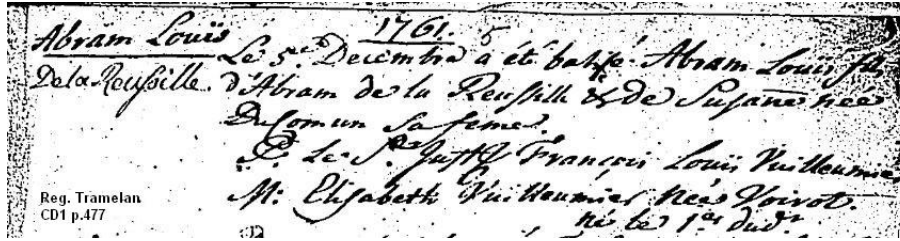 1761. 5
Abram Louïs
De la Reussille.
Le 5.e Decembre a été batisé Abram Louïs fils
d'Abram de la Reussille & de Susane née
Ducomun sa feme.
P. Le Sr. Just. François Louïs Vuilleumier
M: Elisabeth Vuilleumier née Voirot.
né le 1er dud.t
Reg. Tramelan
CD1 p.477